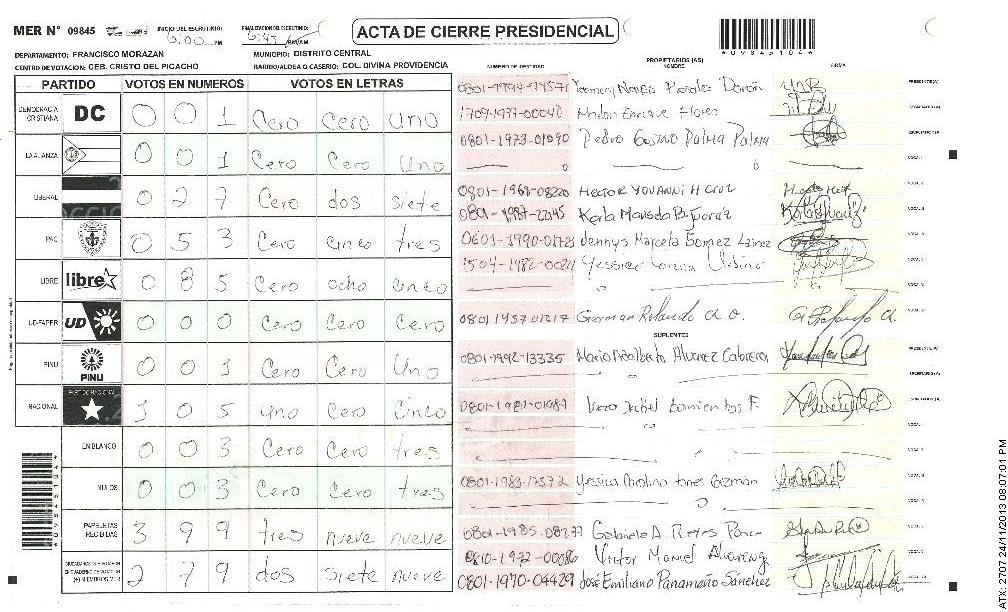 MER N° 09845 INICIO DEL ESCRUTINIO: 6:00 PM FINALIZACION DEL ESCRUTINIO: 6:45 PM/AM ACTA DE CIERRE PRESIDENCIAL
DEPARTAMENTO: FRANCISCO MORAZAN MUNICIPIO: DISTRITO CENTRAL
CENTRO DE VOTACION: CEB. CRISTO DEL PICACHO BARRIO/ALDEA O CASERIO: COL. DIVINA PROVIDENCIA
PARTIDO VOTOS EN NUMEROS VOTOS EN LETRAS NUMERO DE IDENTIDAD PROPIETARIOS (AS) NOMBRE FIRMA
DEMOCRACIA CRISTIANA DC 0 0 1 Cero Cero Uno
LA ALIANZA 0 0 1 Cero Cero Uno
LIBERAL 0 2 7 Cero dos siete
PAC 0 5 3 Cero cinco tres
LIBRE libre 0 8 5 Cero ocho cinco
UD-FAPER UD 0 0 0 Cero Cero Cero
PINU PINU 0 0 1 Cero Cero Uno
NACIONAL PARTIDO NACIONAL 1 0 5 uno Cero Cinco
EN BLANCO 0 0 3 Cero Cero tres
NULOS 0 0 3 Cero Cero tres
PAPELETAS RECIBIDAS 3 9 9 tres nueve nueve
2 7 9 dos siete nueve
1709-1977-00040 Enrique Flores
0801-1973-01090 Pedro Gustavo Palma Palma
0801-1963-08220 HECTOR YOVANNI H CRUZ
0801-1987-22145 Karla
0601-1990-0178 Jennys Marcela Gomez Lainez
1504-1982-00211 Yessica Lorena
0801 1957 01217 German Rolando
SUPLENTES
0801-1992-13335 Mario Adalberto Alvarez Cabrera
0801-1981-01987 Isabel Barrientos F.
0801-1983-17572 Yessica Carolina Guzmán
0801-1985-08277 Gabriela A. Reyes
0810-1972-00086 Victor Manuel
0801-1970-04429 José Emiliano Panameño Sánchez
ATX: 2707 24/11/2013 08:07:01 PM